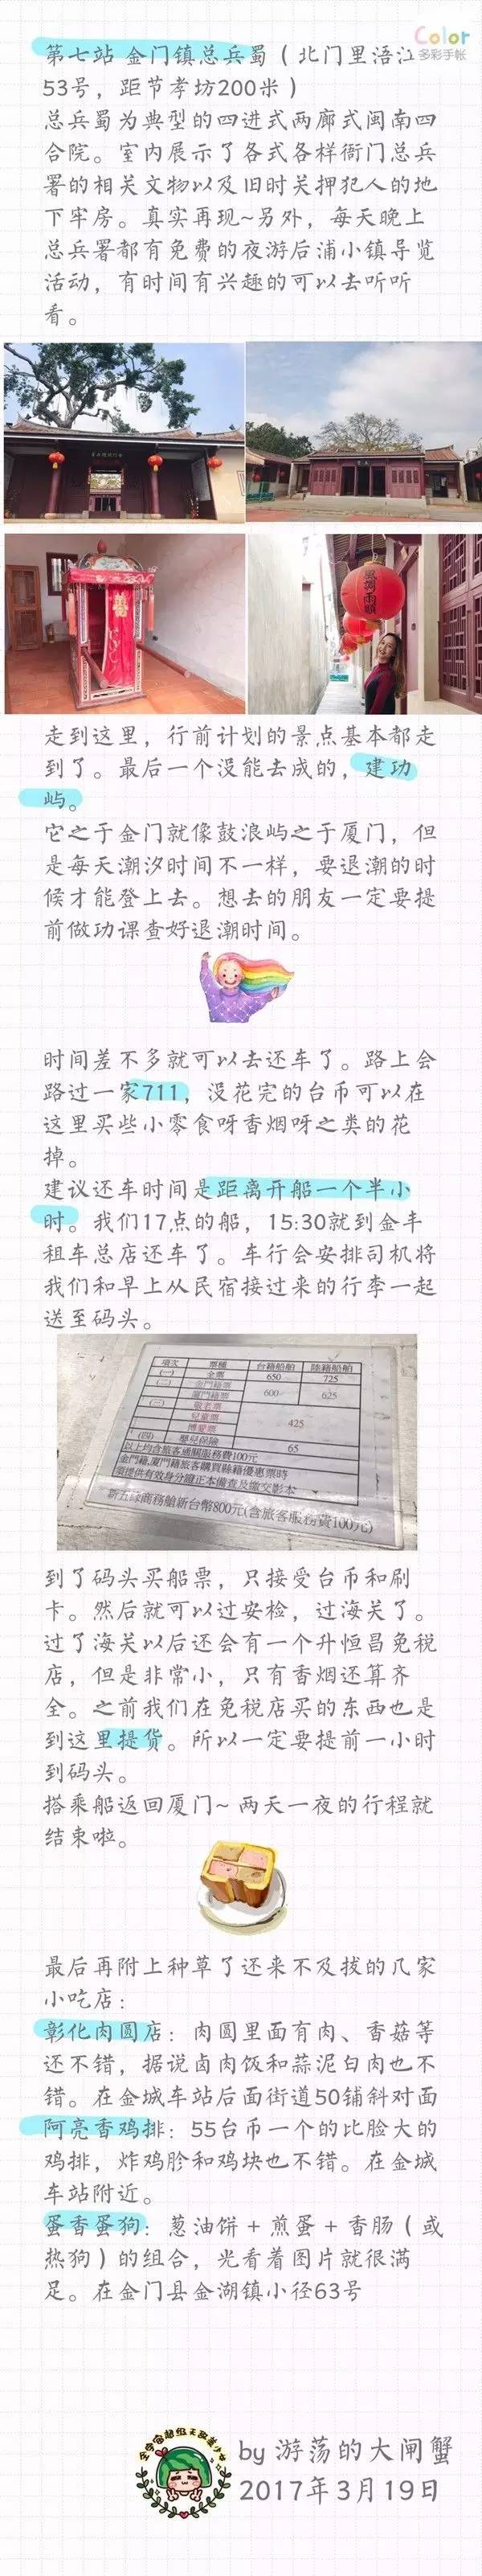 Color
多彩手帐
第七站 金门镇总兵蜀（北门里浯江
53号，距节孝坊200米）
总兵蜀为典型的四进式两廊式闽南四
合院。室内展示了各式各样衙门总兵
署的相关文物以及旧时关押犯人的地
下牢房。真实再现~另外，每天晚上
总兵署都有免费的夜游后浦小镇导览
活动，有时间有兴趣的可以去听听
看。
風調雨順
走到这里，行前计划的景点基本都走
到了。最后一个没能去成的，建功
屿。
它之于金门就像鼓浪屿之于厦门，但
是每天潮汐时间不一样，要退潮的时
候才能登上去。想去的朋友一定要提
前做功课查好退潮时间。
时间差不多就可以去还车了。路上会
路过一家711，没花完的台币可以在
这里买些小零食呀香烟呀之类的花
掉。
建议还车时间是距离开船一个半小
时。我们17点的船，15:30就到金丰
租车总店还车了。车行会安排司机将
我们和早上从民宿接过来的行李一起
送至码头。
項次 票種 台籍船舶 陸籍船舶
(一) 全票 650 725
(二) 金門籍票 600 625
廈門籍票
(三) 敬老票 425
兒童票
博愛票
(四) 嬰兒保險 65
以上均含旅客通關服務費100元
金門籍.廈門籍旅客購買縣籍優惠票時
需提供有效身分證正本備查及繳交影本
新五緣商務艙新台幣800元(含旅客服務費100元)
到了码头买船票，只接受台币和刷
卡。然后就可以过安检，过海关了。
过了海关以后还会有一个升恒昌免税
店，但是非常小，只有香烟还算齐
全。之前我们在免税店买的东西也是
到这里提货。所以一定要提前一小时
到码头。
搭乘船返回厦门~ 两天一夜的行程就
结束啦。
最后再附上种草了还来不及拔的几家
小吃店：
彰化肉圆店：肉圆里面有肉、香菇等
还不错，据说卤肉饭和蒜泥白肉也不
错。在金城车站后面街道50铺斜对面
阿亮香鸡排：55台币一个的比脸大的
鸡排，炸鸡胗和鸡块也不错。在金城
车站附近。
蛋香蛋狗：葱油饼+煎蛋+香肠（或
热狗）的组合，光看着图片就很满
足。在金门县金湖镇小径63号
by 游荡的大闸蟹
2017年3月19日